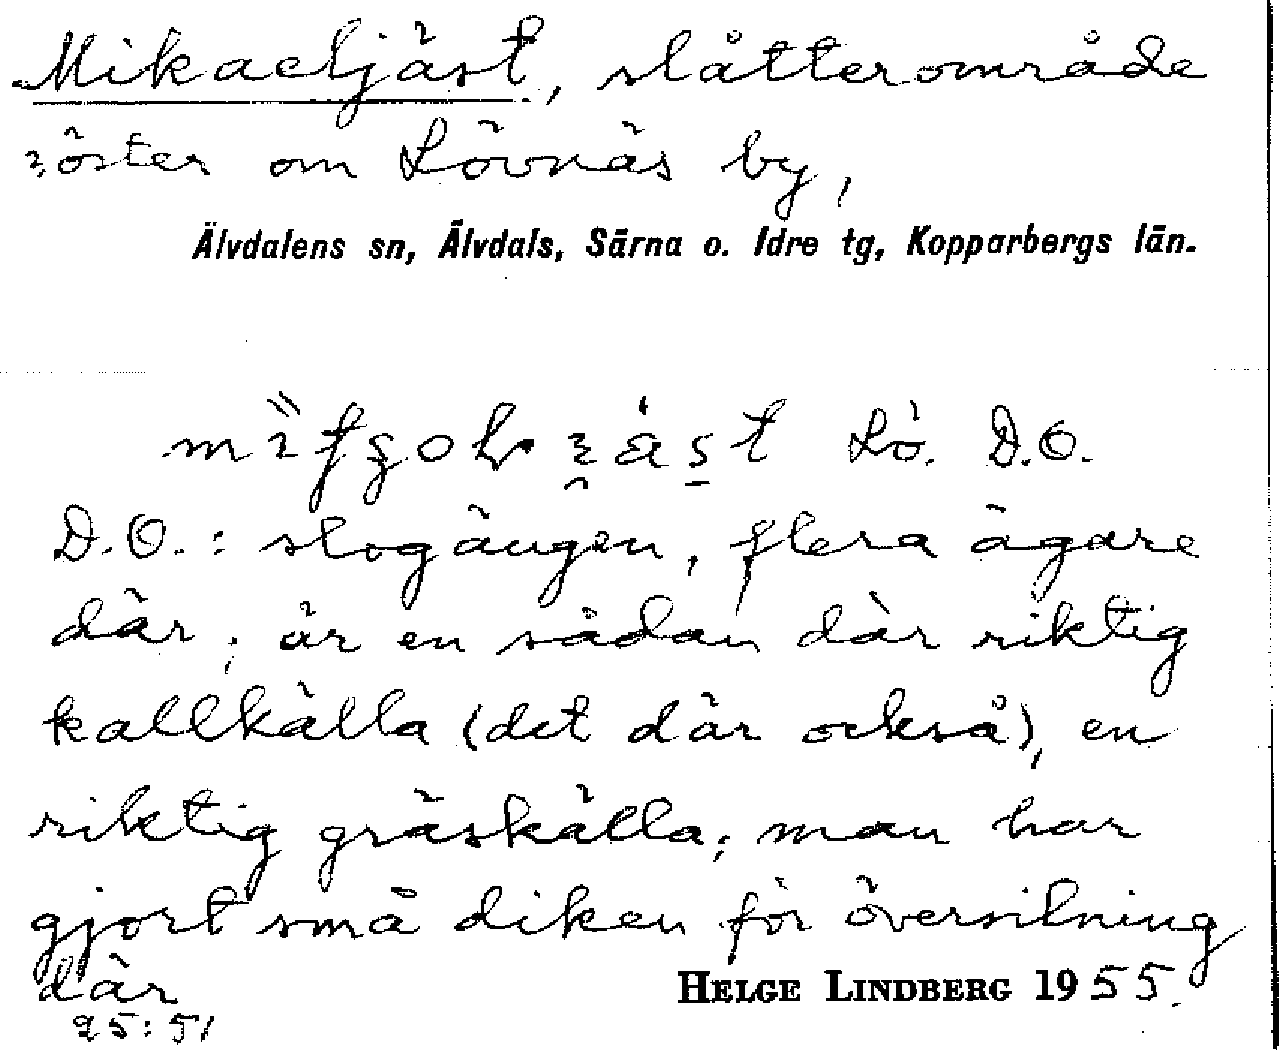 Mikaeljäst, slåtterområde
öster om Lövnäs by,
Älvdalens sn, Älvdals, Särna o. Idre tg, Kopparbergs län.
Lö. D.O.
D.O.: slogängen, flera ägare
där; är en sådan där riktig
kallkälla (det där också), en
riktig gräskälla; man har
gjort små diken för översilning
där
HELGE LINDBERG 1955.
25:51